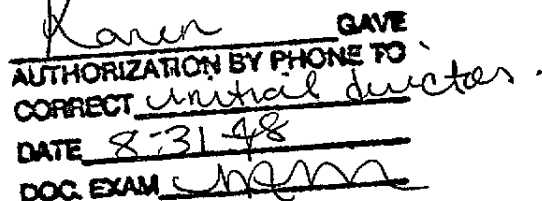 Karen GAVE
AUTHORIZATION BY PHONE TO
CORRECT initial directors.
DATE 8-31-98
DOC. EXAM